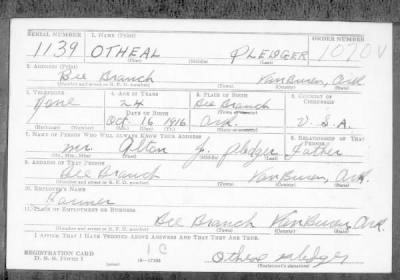 SERIAL NUMBER 1. NAME (Print) ORDER NUMBER
1139 OTHEAL PLEDGER 1070V
(First) (Middle) (Last)
2. ADDRESS (Print)
Bee Branch Van Buren, Ark
(Number and street or R. F. D. number) (Town) (County) (State)
3. TELEPHONE 4. AGE IN YEARS 5. PLACE OF BIRTH 6. COUNTRY OF CITIZENSHIP
None 24 Bee Branch
DATE OF BIRTH (Town or county)
Oct. 16 1916 Ark. U.S.A.
(Exchange) (Number) (Mo.) (Day) (Yr.) (State or country)
7. NAME OF PERSON WHO WILL ALWAYS KNOW YOUR ADDRESS 8. RELATIONSHIP OF THAT PERSON
Mr. Alton J. Pledger Father
(Mr., Mrs., Miss) (First) (Middle) (Last)
9. ADDRESS OF THAT PERSON
Bee Branch Van Buren, Ark.
(Number and street or R. F. D. number) (Town) (County) (State)
10. EMPLOYER'S NAME
Farmer
11. PLACE OF EMPLOYMENT OR BUSINESS
Bee Branch Van Buren, Ark.
(Number and street or R. F. D. number) (Town) (County) (State)
I AFFIRM THAT I HAVE VERIFIED ABOVE ANSWERS AND THAT THEY ARE TRUE.
REGISTRATION CARD 1C
D. S. S. Form 1 16-17105 Otheal Pledger
(Registrant's signature)